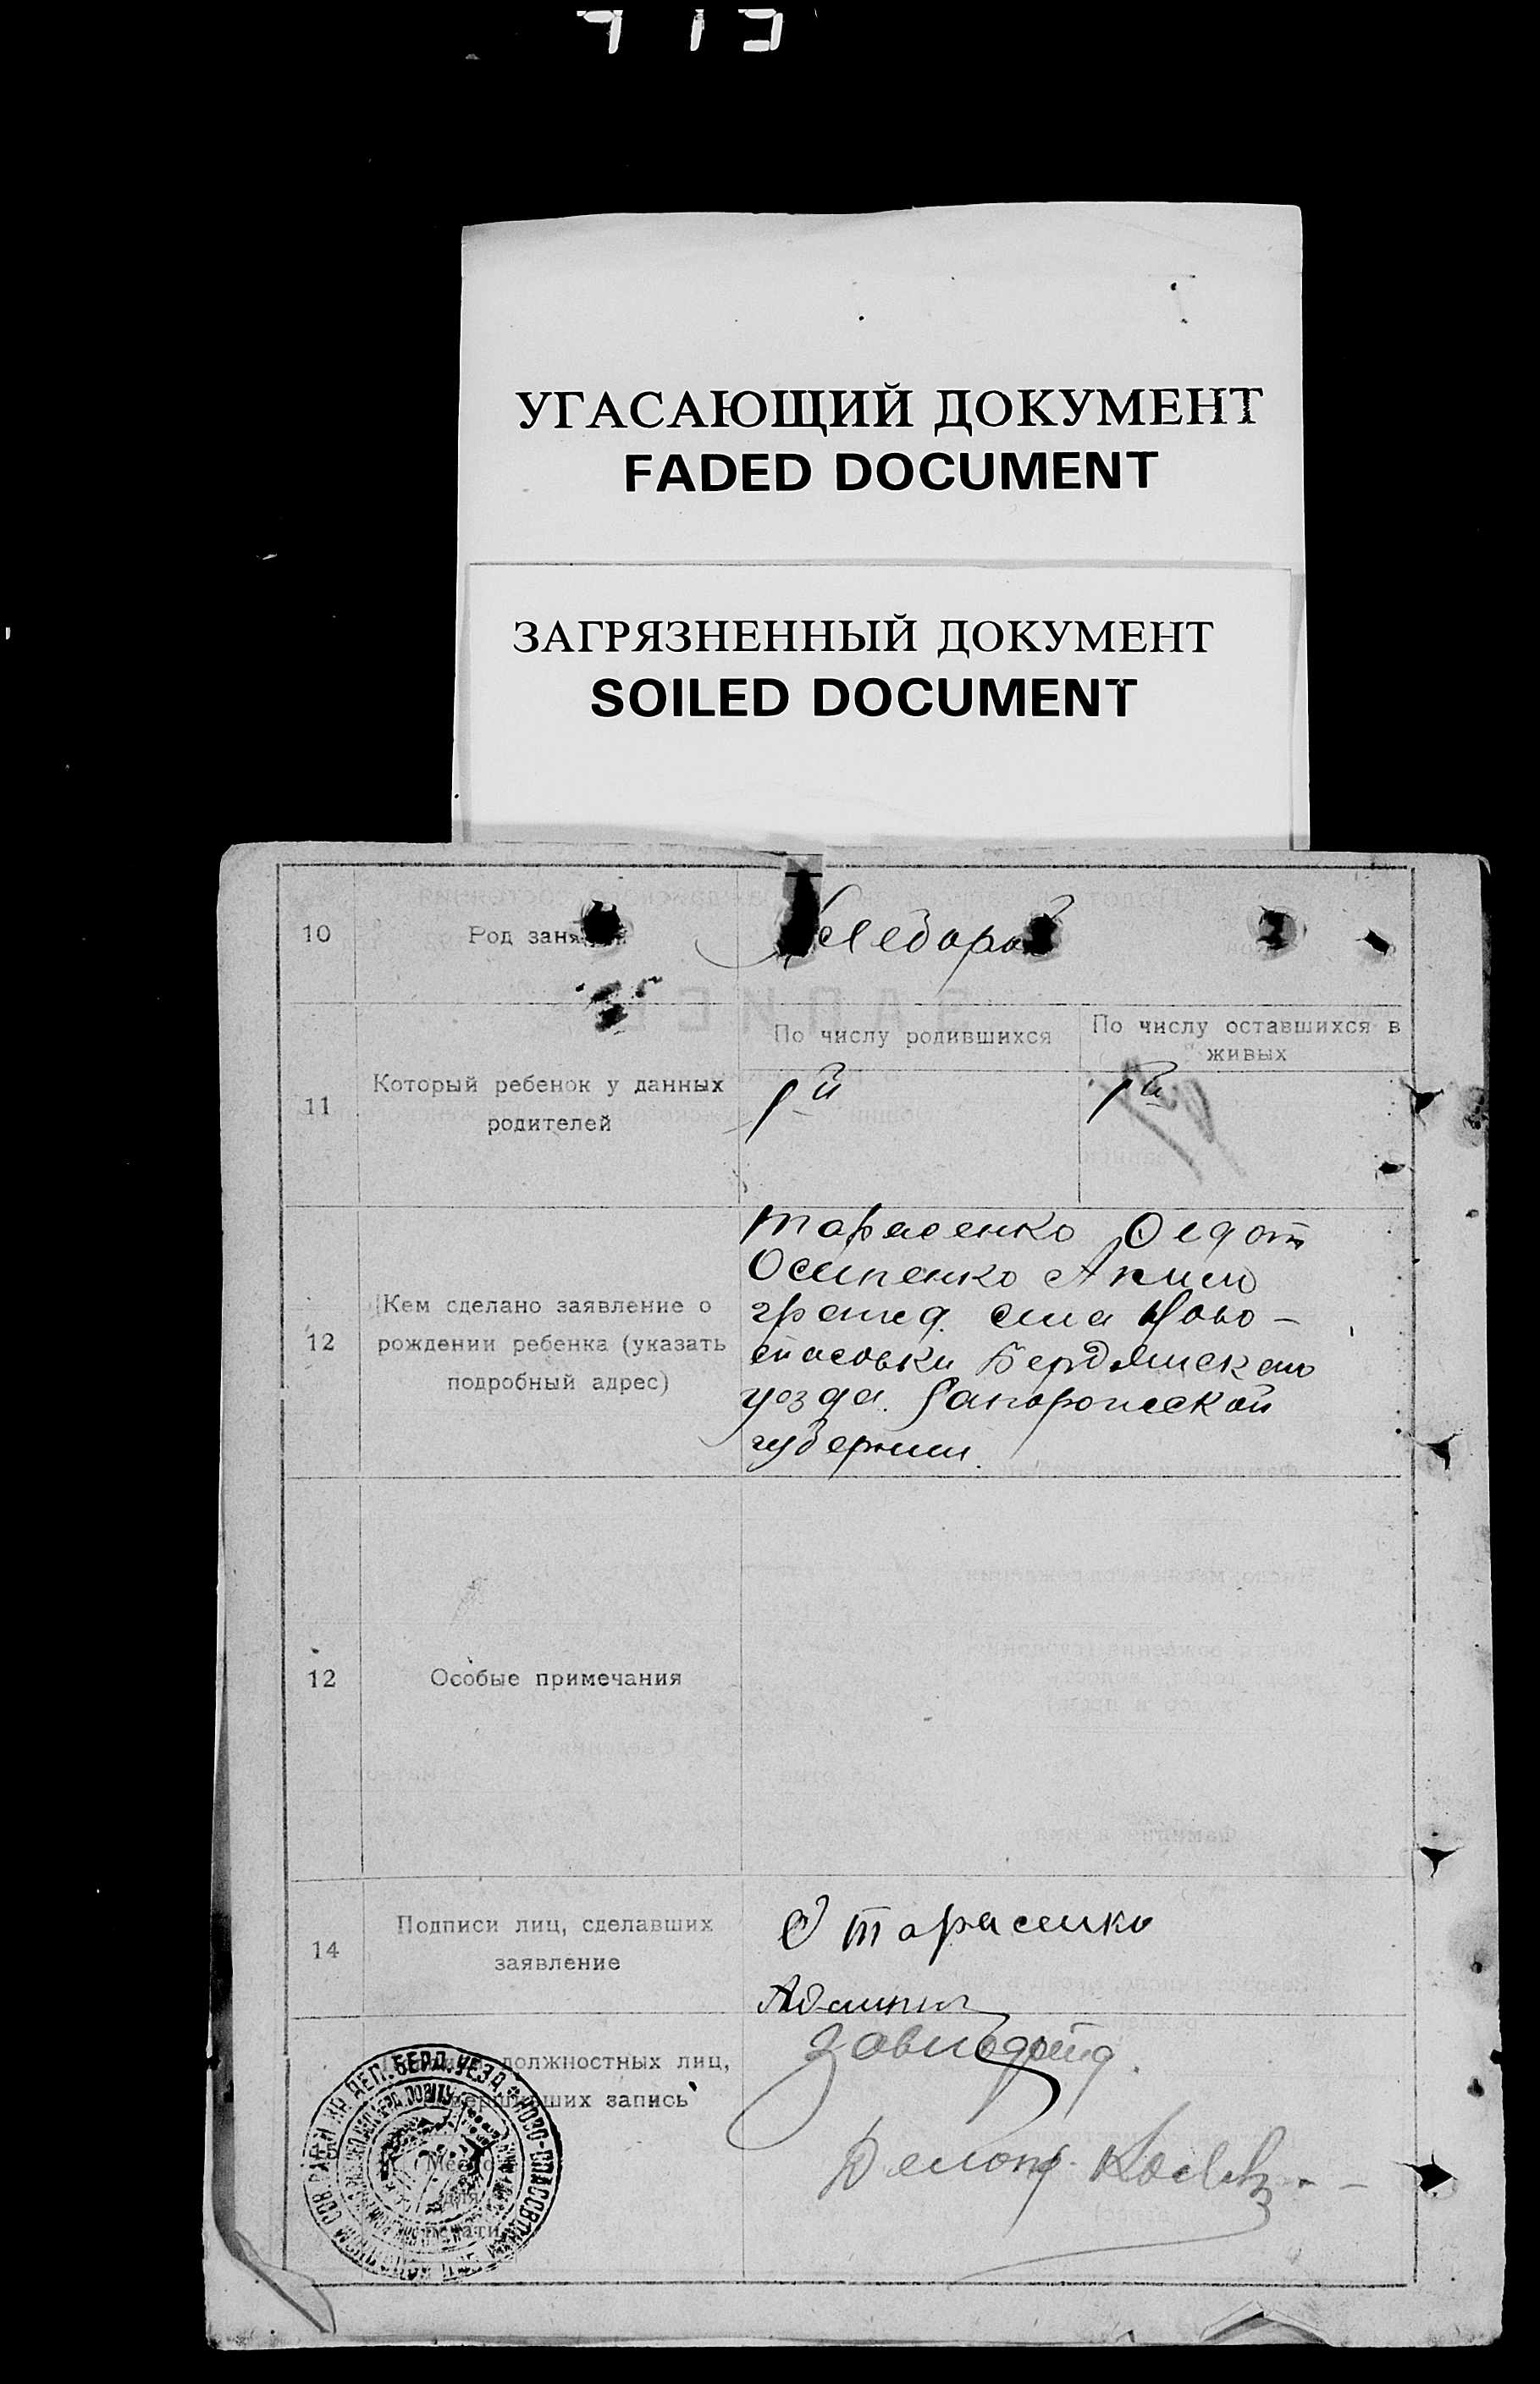 УГАСАЮЩИЙ ДОКУМЕНТ
FADED DOCUMENT
ЗАГРЯЗНЕННЫЙ ДОКУМЕНТ
SOILED DOCUMENT
10
Род занятий
11
Который ребенок у данных
родителей
По числу родившихся
1й
По числу оставшихся в
живых
1й
12
Кем сделано заявление о
рождении ребенка (указать
подробный адрес)
Тарасенко Федот
Осипенко Аким
гражд. села Ново-
спасовки Бердянского
уезда. Запорожской
губернии.
12
Особые примечания
14
Подписи лиц, сделавших
заявление
Ф Тарасенко
должностных лиц,
совершивших запись
Место
для
печати
Завподотд.
Делопр.